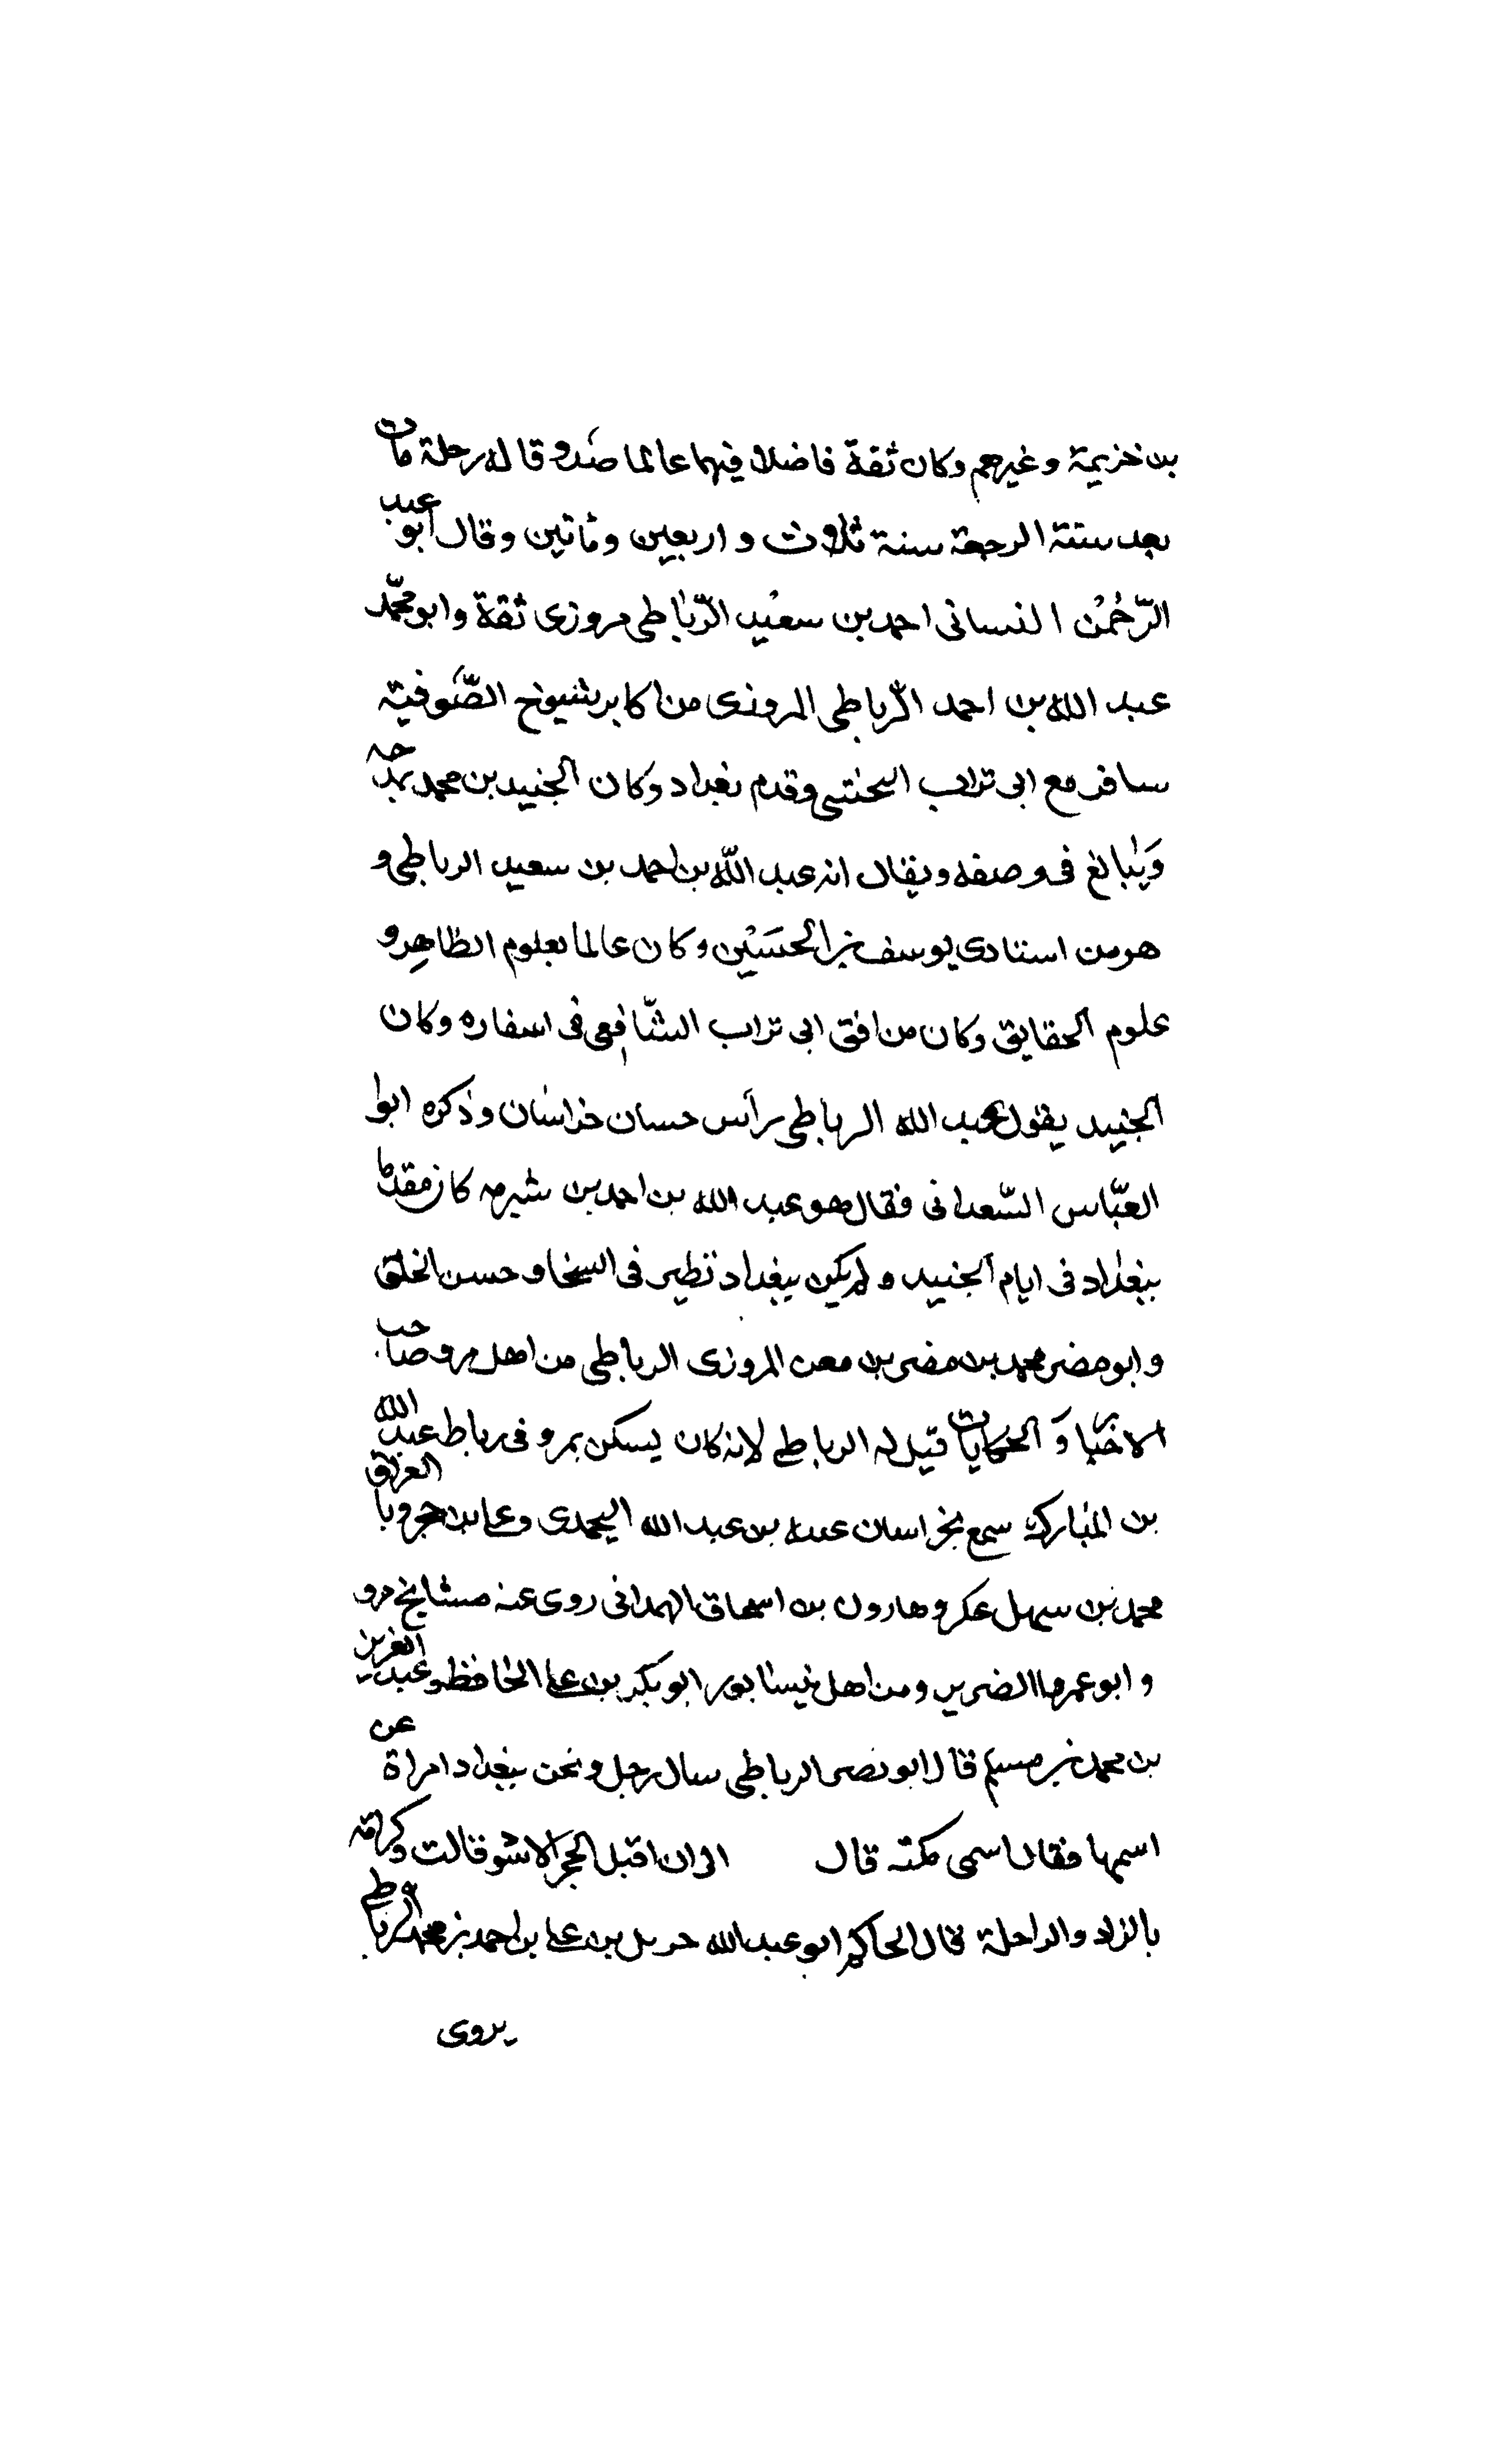 بن خزيمة وغيرهم وكان ثقة فاضلا فيهما عالما صدوقا له رحلة مات
بعد سنة الرجعة سنة ثلاث و اربعين ومأتين وقال ابو عبد
الرّحمٰن النسائى احمد بن سعيد الرّباطى مروزى ثقة وابو محمّد
عبد الله بن احمد الرّباطى المروزى من اكابر شيوخ الصّوفية
سافر مع ابى تراب النخشبى وقدم بغداد وكان الجنيد بن محمد يمدحه
وَيبالغ فى وصفه ويقال انه عبد اللّه بن احمد بن سعيد الرباطى و
هو من استادى يوسف بن الحسَيْن وكان عالما بعلوم الظاهِر و
علوم الحقايق وكان من افق ابى تراب الشّافعى فى اسفاره وكان
الجنيد يقول عبد الله الرباطى رأس حسان خراسان وذكره ابوا
العبّاس السّعدانى فقال هو عبد الله بن احمد بن شيرمه كان مقدما
ببغداد فى ايام الجنيد ولم يكن ببغداد نظير فى السخا و حسن الخلق
وابو مضر محمد بن مضر بن معن المروزى الرباطى من اهل مرو صاحب
الاخبار وَ الحكايات قيل له الرباطى لانه كان يسكن بمرو فى رباط عبد الله
بن المبارك سمع بخراسان عبده بن عبد الله اليحمدى وعلى بن حجر وبا العراق
محمد بن سهل عكر وهارون بن اسحاق الهمدانى روى عنه مشايخ مرو
و ابو عمرو الضرير ومن اهل نيسابور ابو بكر بن على الحافظ وعبد العزيز
بن محمد بن مسلم قال ابو نصر الرباطى سال رجل ونحن ببغداد امراة عن
اسمها فقال اسمى مكته قال الى ان اقبل الحجر الاسو قالت وكرامة
بالزاد والراحلة قال الحاكم ابو عبد الله بن على بن احمد بن محمد الرباطى
يروى